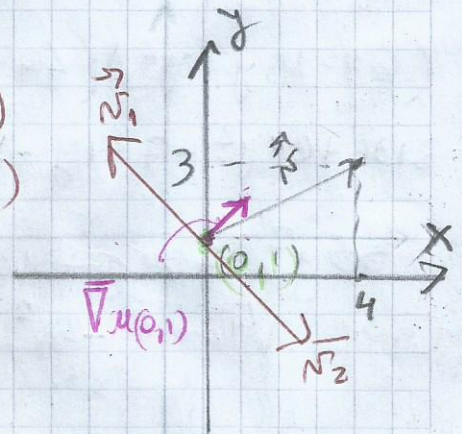 y
)
)
N⃗₁
3
(0,1)
x
4
∇̄μ(0,1)
N̄₂